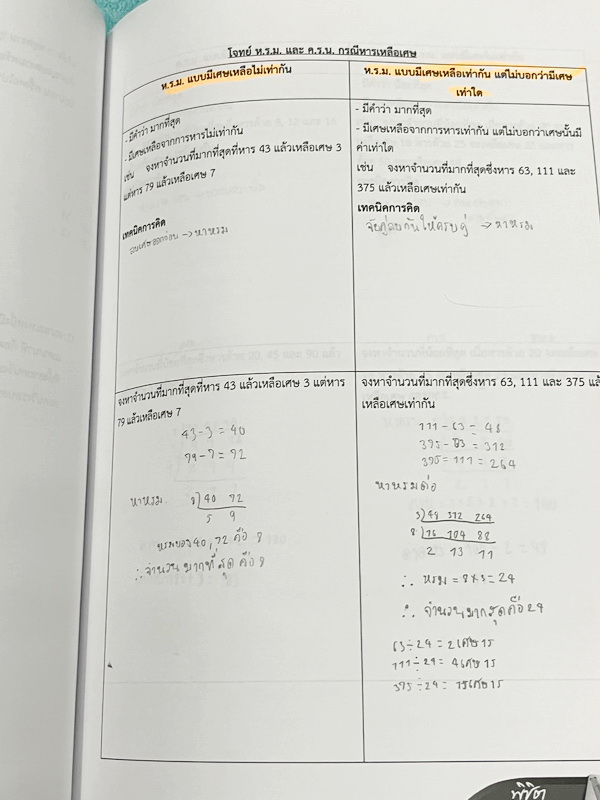 โจทย์ ห.ร.ม. และ ค.ร.น. กรณีหารเหลือเศษ
ห.ร.ม. แบบมีเศษเหลือไม่เท่ากัน
- มีคำว่า มากที่สุด
- มีเศษเหลือจากการหารไม่เท่ากัน
เช่น จงหาจำนวนที่มากที่สุดที่หาร 43 แล้วเหลือเศษ 3
แต่หาร 79 แล้วเหลือเศษ 7
เทคนิคการคิด
ลบเศษออกก่อน → หาหรม
ห.ร.ม. แบบมีเศษเหลือเท่ากัน แต่ไม่บอกว่ามีเศษ
เท่าใด
- มีคำว่า มากที่สุด
- มีเศษเหลือจากการหารเท่ากัน แต่ไม่บอกว่าเศษนั้นมี
ค่าเท่าใด
เช่น จงหาจำนวนที่มากที่สุดซึ่งหาร 63, 111 และ
375 แล้วเหลือเศษเท่ากัน
เทคนิคการคิด
จับคู่ลบกันให้ครบคู่ → หาหรม
จงหาจำนวนที่มากที่สุดที่หาร 43 แล้วเหลือเศษ 3 แต่หาร
79 แล้วเหลือเศษ 7
43-3 = 40
79-7 = 72
หาหรม 8) 40 72
5 9
หรมของ 40, 72 คือ 8
∴ จำนวนมากที่สุดคือ 8
จงหาจำนวนที่มากที่สุดซึ่งหาร 63, 111 และ 375 แล้ว
เหลือเศษเท่ากัน
111 - 63 = 48
375 - 63 = 312
375 - 111 = 264
หาหรมต่อ
3) 48 312 264
8) 16 104 88
2 13 11
∴ หรม = 8 × 3 = 24
∴ จำนวนมากสุดคือ 24
63 ÷ 24 = 2 เศษ 15
111 ÷ 24 = 4 เศษ 15
375 ÷ 24 = 15 เศษ 15